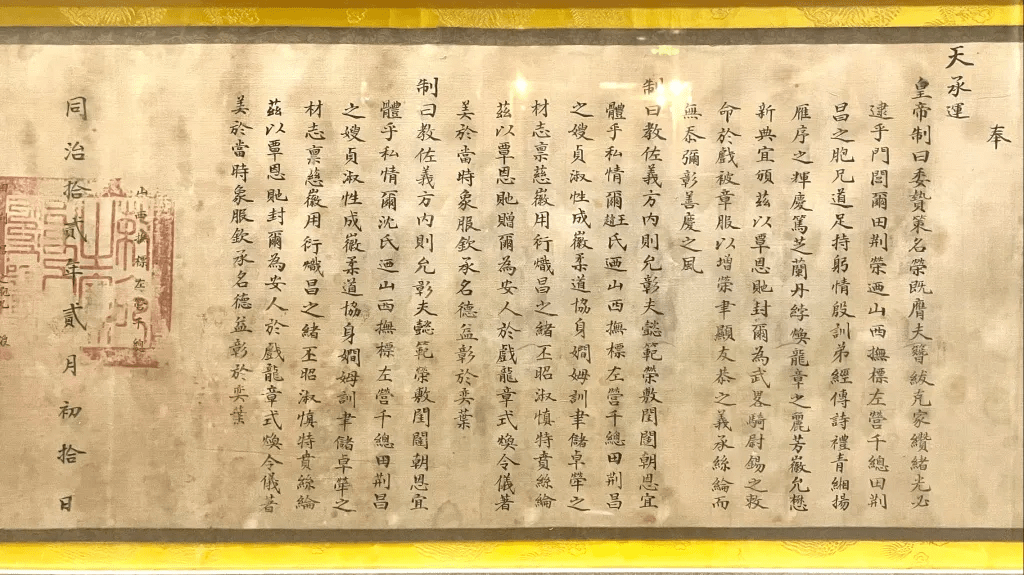 奉
天承運
皇帝制曰委贄策名榮既膺夫簪紱克家纘緒光必
逮乎門閭爾田荆榮迺山西撫標左營千總田荆
昌之胞兄道足持躬情殷訓弟經傳詩禮青緗揚
雁序之輝慶篤芝蘭丹綍煥龍章之麗芳徽允懋
新典宜頒茲以覃恩貤封爾為武畧騎尉錫之敕
命於戲被章服以增榮聿顯友恭之義承絲綸而
無忝彌彰善慶之風
制曰教佐義方內則允彰夫懿範榮敷閨閫朝恩宜
體乎私情爾王趙氏迺山西撫標左營千總田荆昌
之嫂貞淑性成徽柔道協身嫺姆訓聿儲卓犖之
材志禀慈徽用衍熾昌之緒丕昭淑慎特賁絲綸
茲以覃恩貤贈爾為安人於戲龍章式煥令儀著
美於當時象服欽承名德益彰於奕葉
制曰教佐義方內則允彰夫懿範榮敷閨閫朝恩宜
體乎私情爾沈氏迺山西撫標左營千總田荆昌
之嫂貞淑性成徽柔道協身嫺姆訓聿儲卓犖之
材志禀慈徽用衍熾昌之緒丕昭淑慎特賁絲綸
茲以覃恩貤封爾為安人於戲龍章式煥令儀著
美於當時象服欽承名德益彰於奕葉
山西撫標左營千總
同治拾貳年貳月初拾日